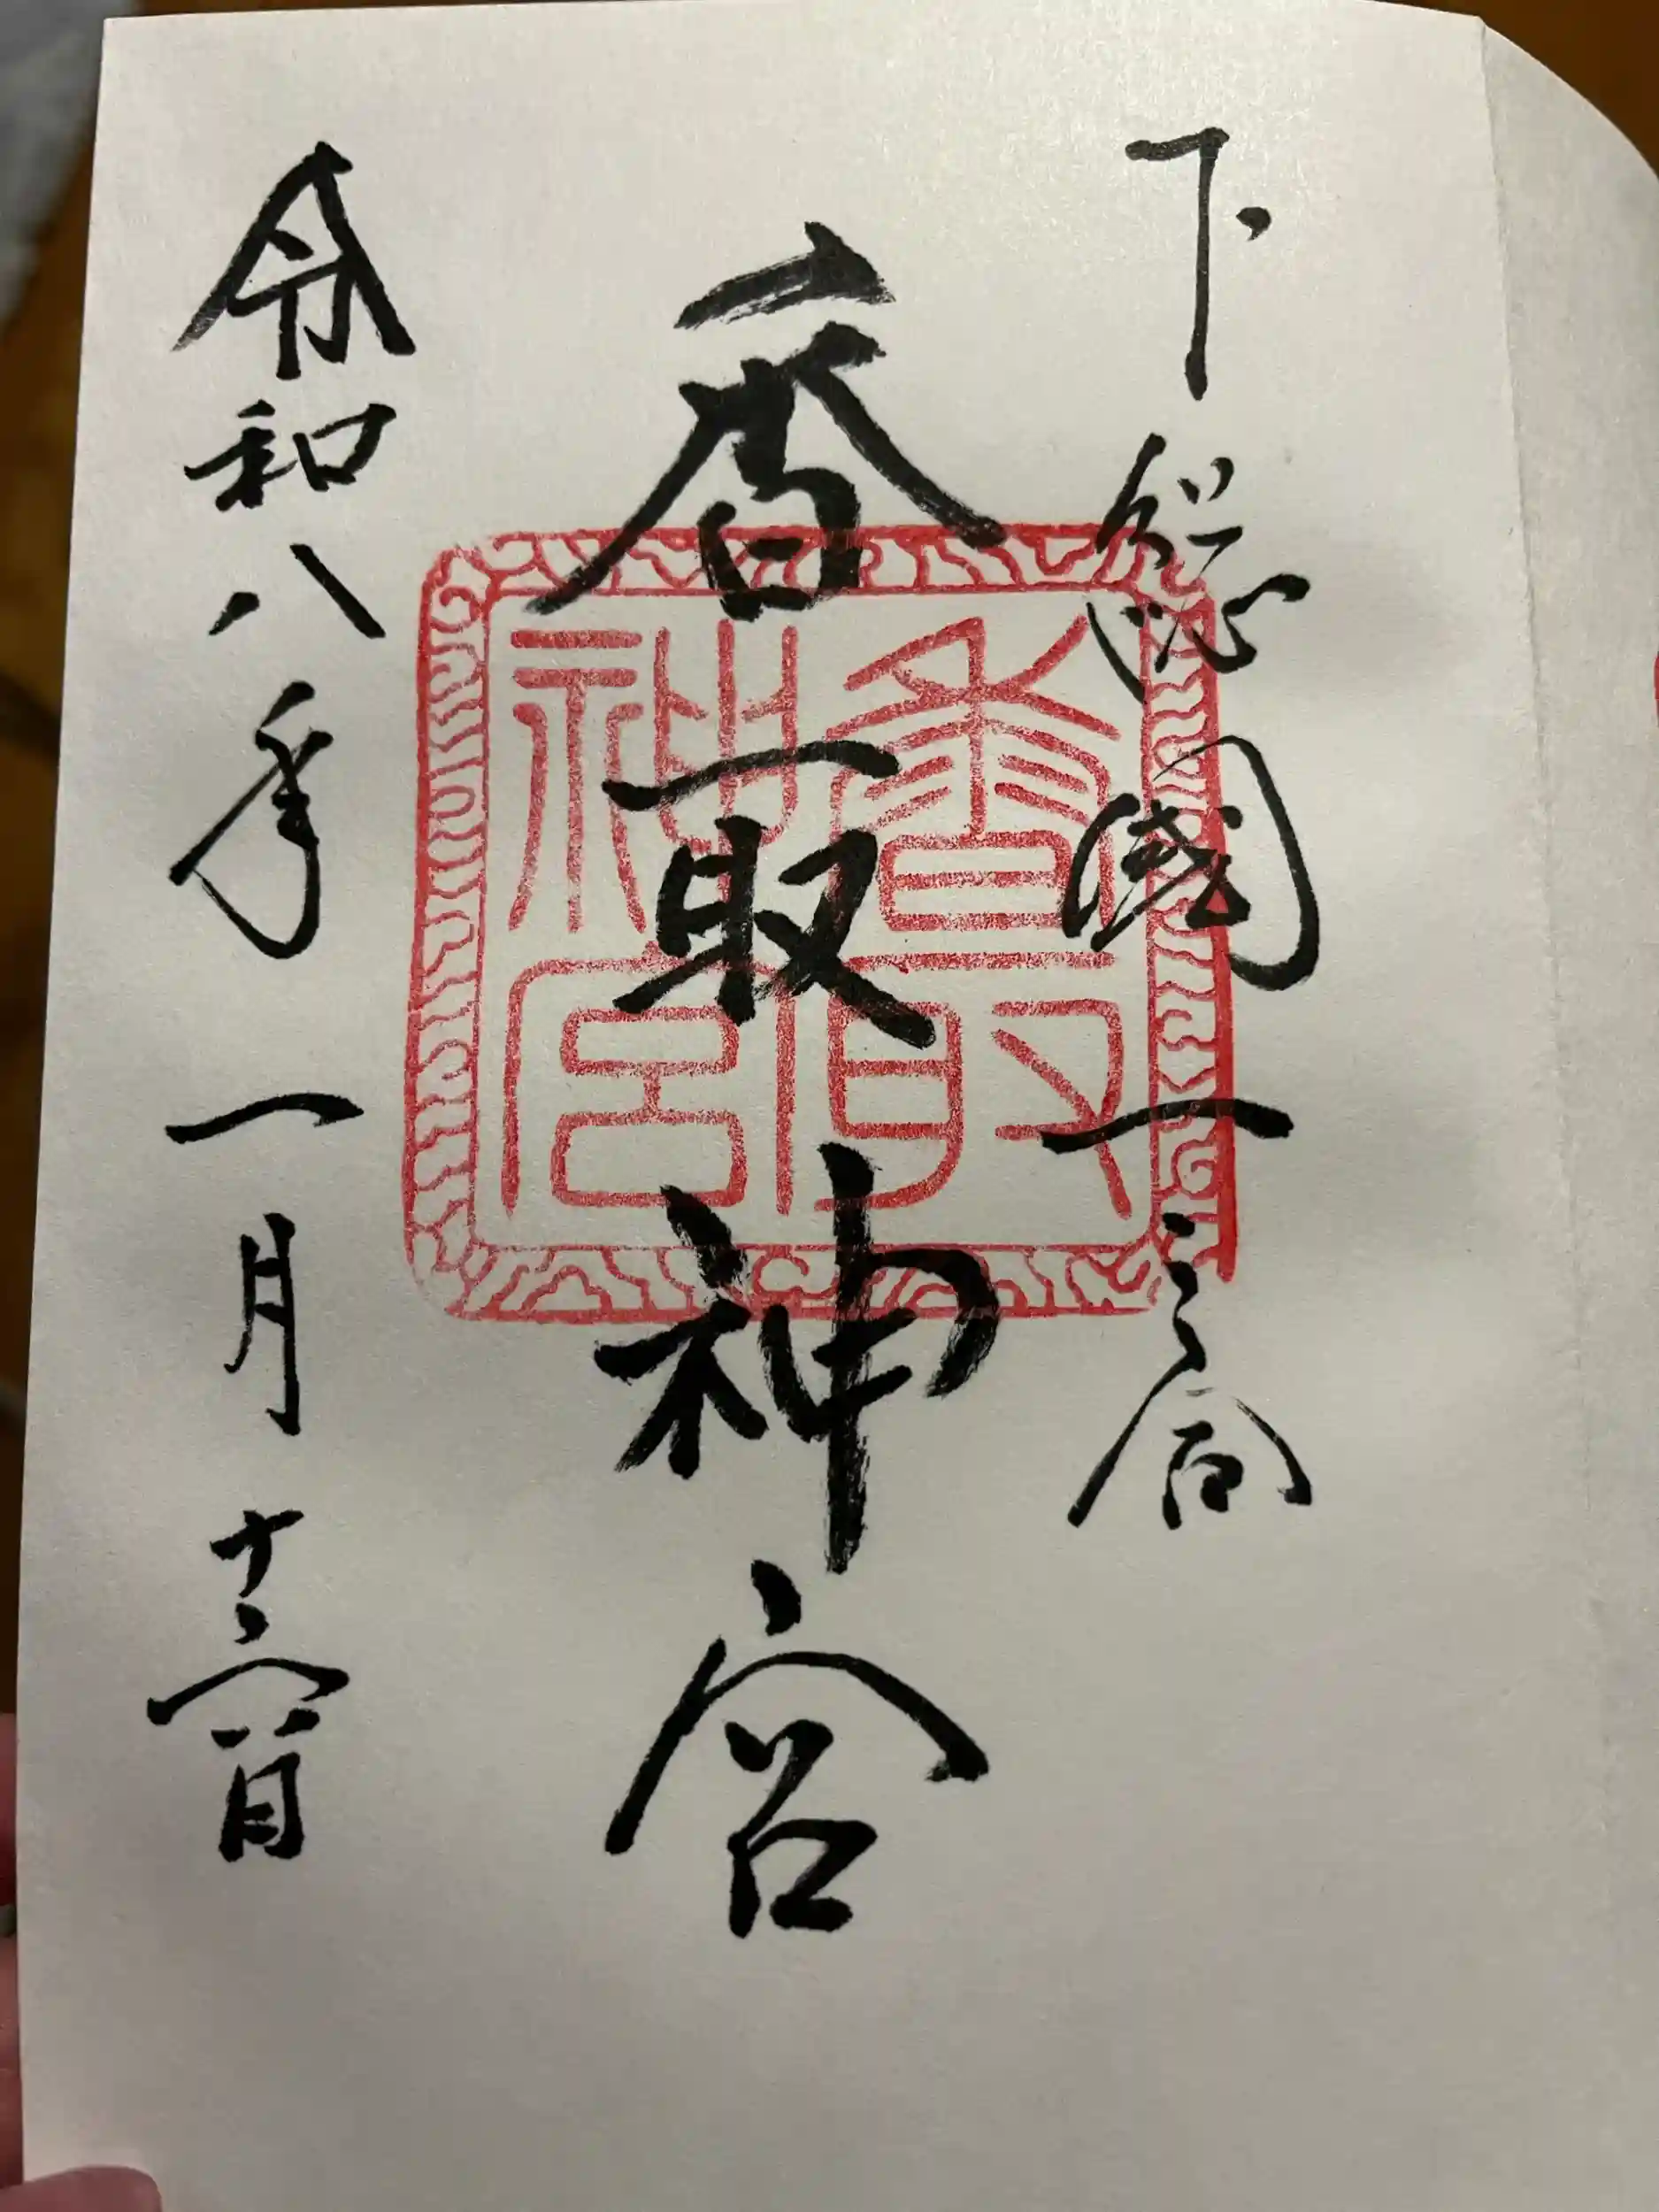 下総國一之宮
香取神宮
香取神宮
令和八年一月十六日